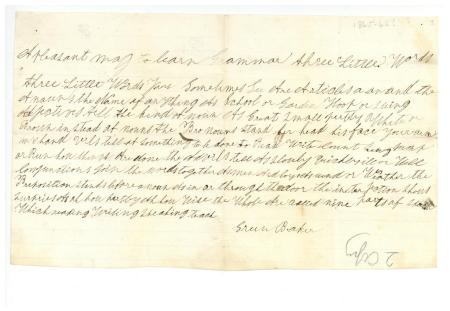 A pleasant way to learn Grammar three Little Words
three Little Words Sometimes See Are Articles a an and the
A noun is the Name of anything As School or Garden Hoop or Swing
Adjectives tell the kind of noun As Great Small pretty White or
Brown in stead of nouns the Pro Nouns Stand her head his face your arm
my hand Verbs tell of Something to be done to Read Write Count Sing Jump
or Run how things Are done the adverbs tell As Slowly Quickly ill or Well
Conjunctions Join the words together As men And by or wind or Weather the
Preposition Stands before a noun As in or through the door the interjection Shows
Surprise As oh how pretty ah how Wise the Whole Are called nine parts of Speech
Which reading Writing Speaking teach
Green Baker